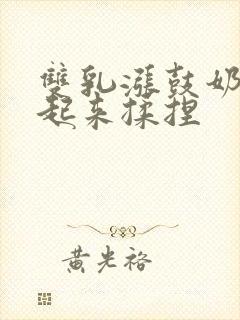 雙乳漲鼓奶
起来揉捏
黄光裕